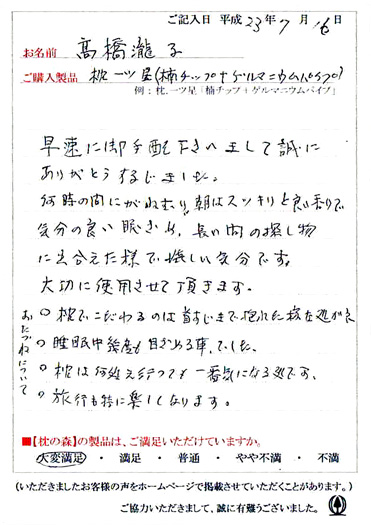 ご記入日 平成 23年 7月 16日
お名前 髙橋瀧子
ご購入製品 枕一ツ星(楠チップ+ゲルマニウムパイプ)
例：枕.一ツ星「楠チップ+ゲルマニウムパイプ」
早速に御手配下さいまして誠に
ありがとうございました。
何時の間にかねむり 朝はスッキリと良い香りで
気分の良い眠さめ、長い間の探し物
に出合えた様で嬉しい気分です。
大切に使用させて頂きます。
おたづねについて
○ 枕でこだわるのは首すじまで
○ 睡眠中 幾度も目ざめる事、でした、
○ 枕は何処え行っても一番気になる処です、
○ 旅行も特に楽しくなります。
■【枕の森】の製品は、ご満足いただけていますか。
大変満足 ・ 満足 ・ 普通 ・ やや不満 ・ 不満
(いただきましたお客様の声をホームページで掲載させていただくことがあります。)
ご協力いただきまして、誠に有難うございました。